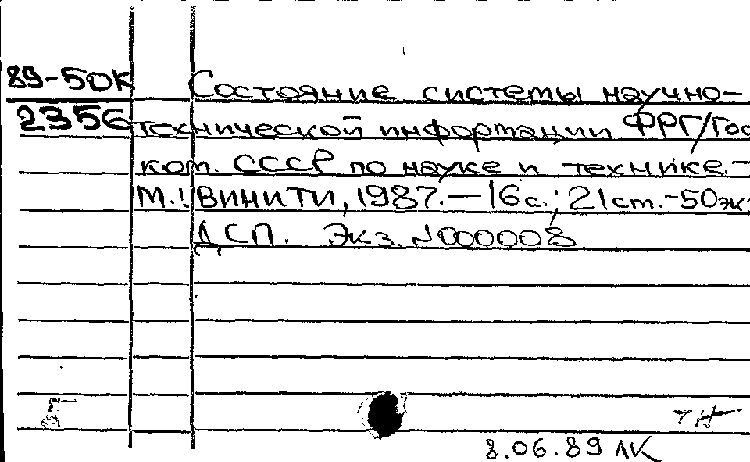 89-50К Состояние системы научно-
2356 технической информации ФРГ/Гос
ком. СССР по науке и технике.-
М.: ВИНИТИ, 1987.—16с.; 21см.-50эк
ДСП. Экз. №000008
8.06.89 ЛК